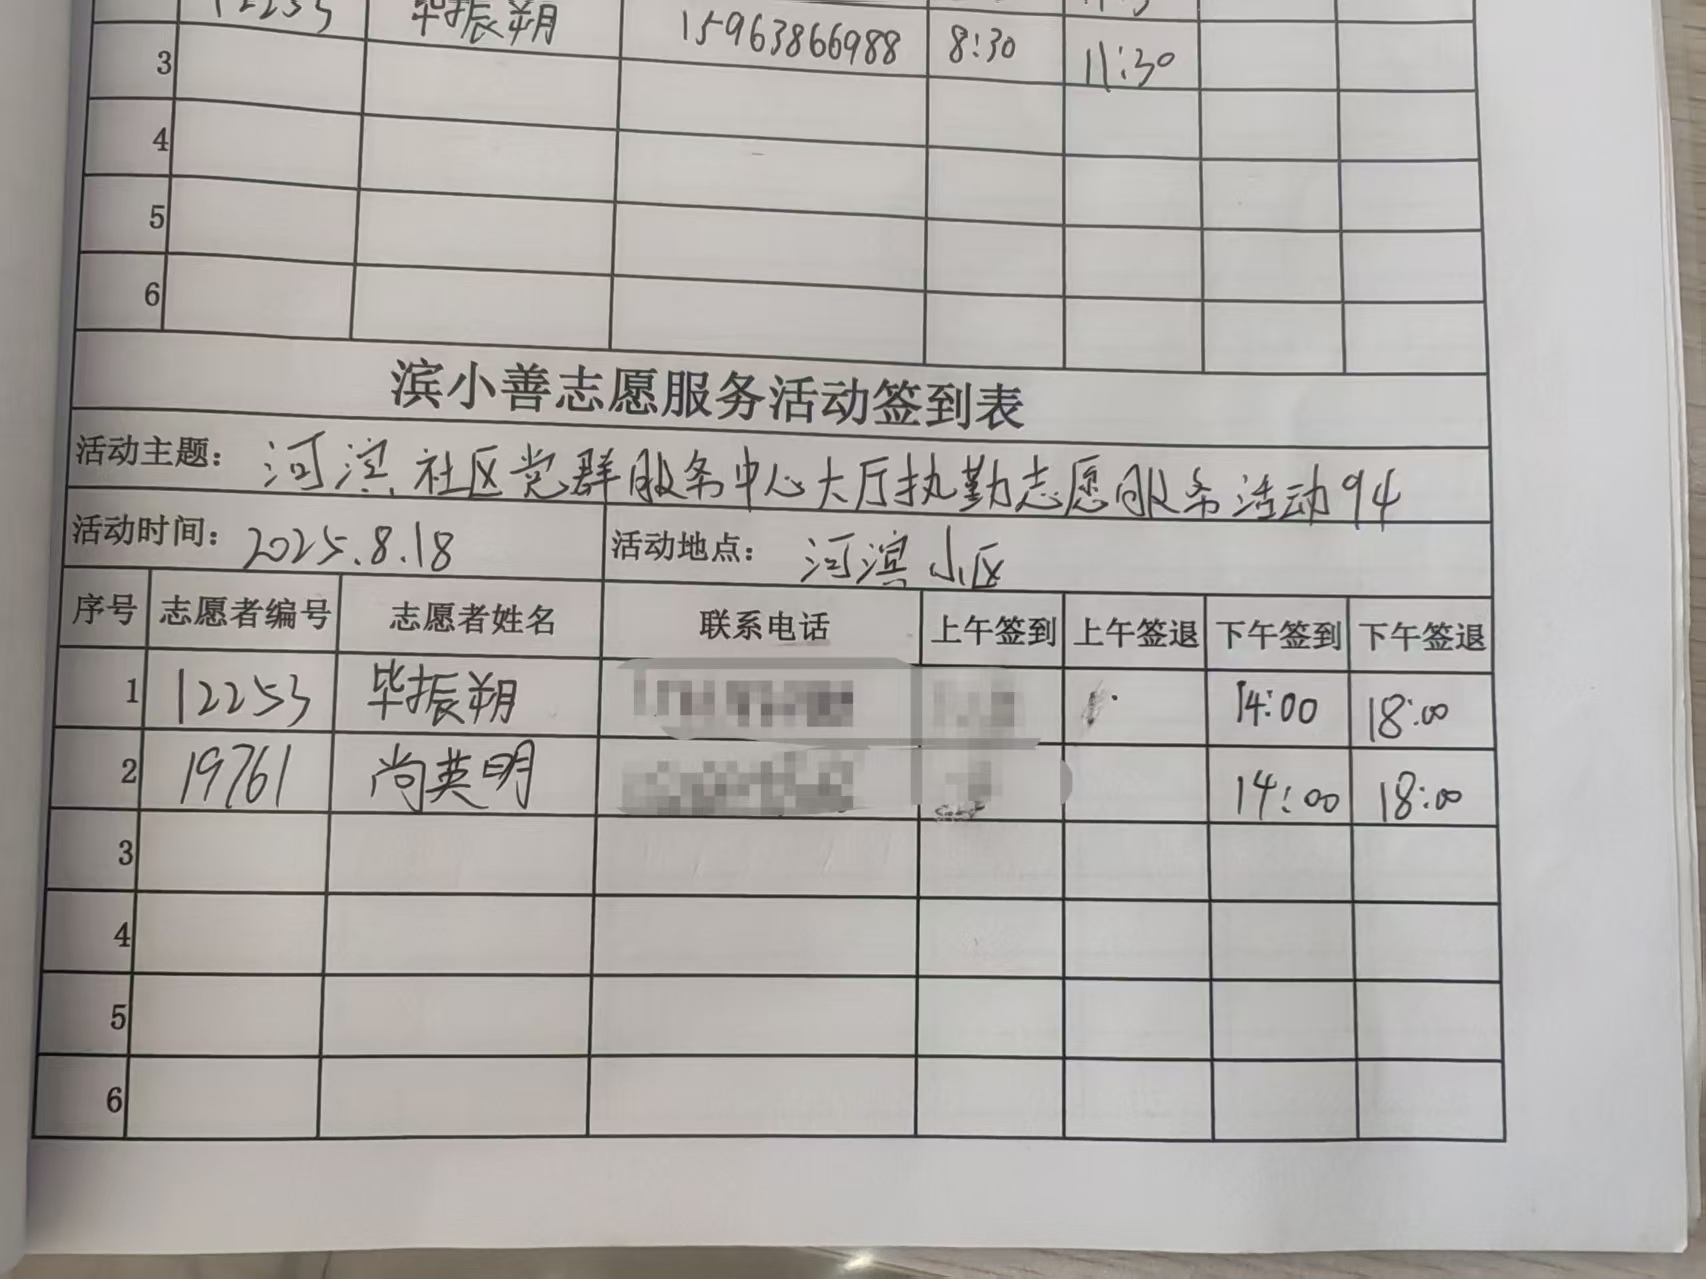 12253 毕振朔 15963866988 8:30 11:30
3
4
5
6
滨小善志愿服务活动签到表
活动主题： 河滨社区党群服务中心大厅执勤志愿服务活动94
活动时间： 2025.8.18 活动地点： 河滨小区
序号 志愿者编号 志愿者姓名 联系电话 上午签到 上午签退 下午签到 下午签退
1 12253 毕振朔 14:00 18:00
2 19761 尚英明 14:00 18:00
3
4
5
6